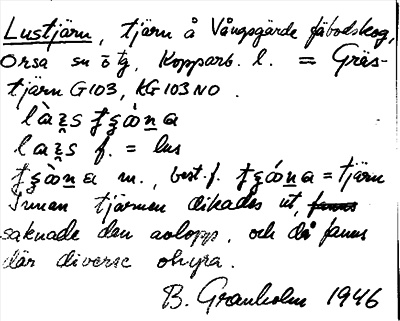 Lustjärn, tjärn å Vångsgärde fäbodskog,
Orsa sn o tg, Kopparb. l. = Gräs-
tjärn G103, KG103NO.
f. = lus
m., best. f. = tjärn
Innan tjärnen dikades ut,
saknade den avlopp, och då fanns
där diverse ohyra.
B. Granholm 1946